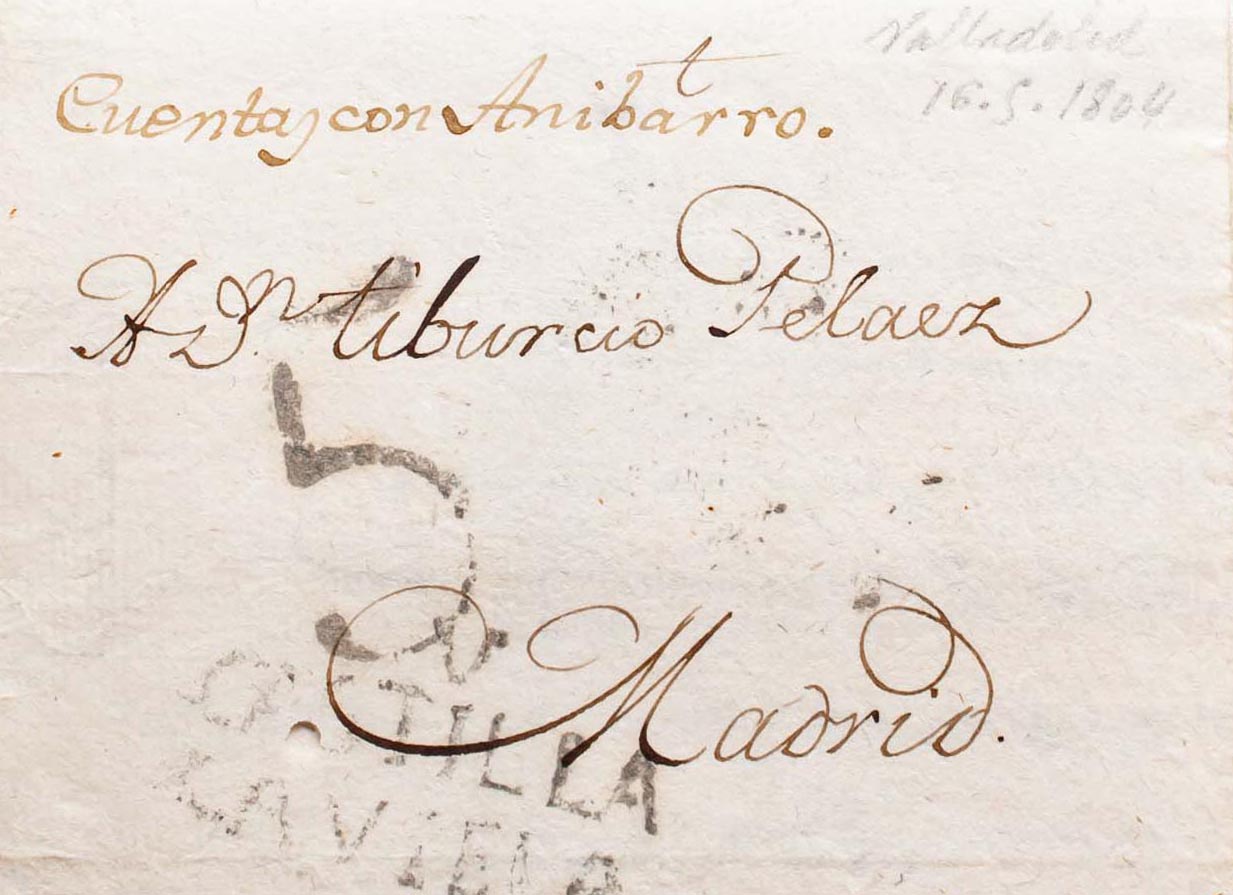 Valladolid
16.5.1804
Cuentas con Anibarro.
A Dn. tiburcio Pelaez
5
Madrid.
CASTILLA
LAVIEJA